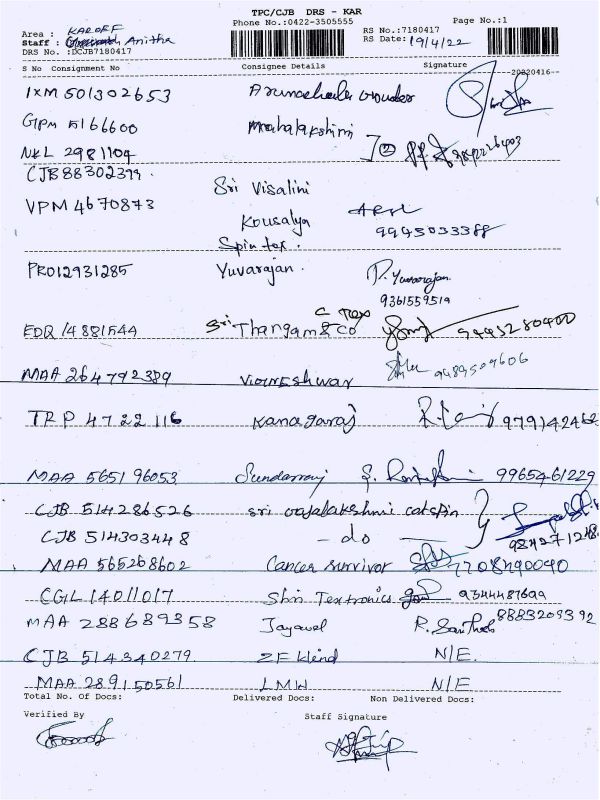 TPC/CJB DRS - KAR
Phone No.:0422-3505555 Page No.:1
Area : KAROFF RS No.:7180417
Staff : Anitha RS Date: 19/4/22
DRS No. :DCJB7180417
S No Consignment No Consignee Details Signature
20220416
IXM 501302653 Arunachala Gounder
GPM 5166600 Mahalakshmi
NKL 2981104 ②
CJB 88302399. Sri Visalini
VPM 4670873 Kousalya
Spintex. 9945033388
PRO12931285 Yuvarajan. P. Yuvarajan.
9361559519
EDQ 14881544 Sri Thangam & Co C Tex
MAA 264792389 Vigneshwar 9489509606
TRP 4722116 Kanagaraj 979142462
MAA 565196053 Sundarraj 9965461229
CJB 514286526 Sri Rajalakshmi Cotspin
CJB 514303448 - do -
MAA 565268602 Cancer Survivor 7708490090
CGL 14011017 Shri Textronics 9344487699
MAA 288689358 Jayavel R. Santhosh 8883209392
CJB 514340279. ZF Wind N/E.
MAA 289150561 LMW N/E
Total No. Of Docs: Delivered Docs: Non Delivered Docs:
Verified By Staff Signature